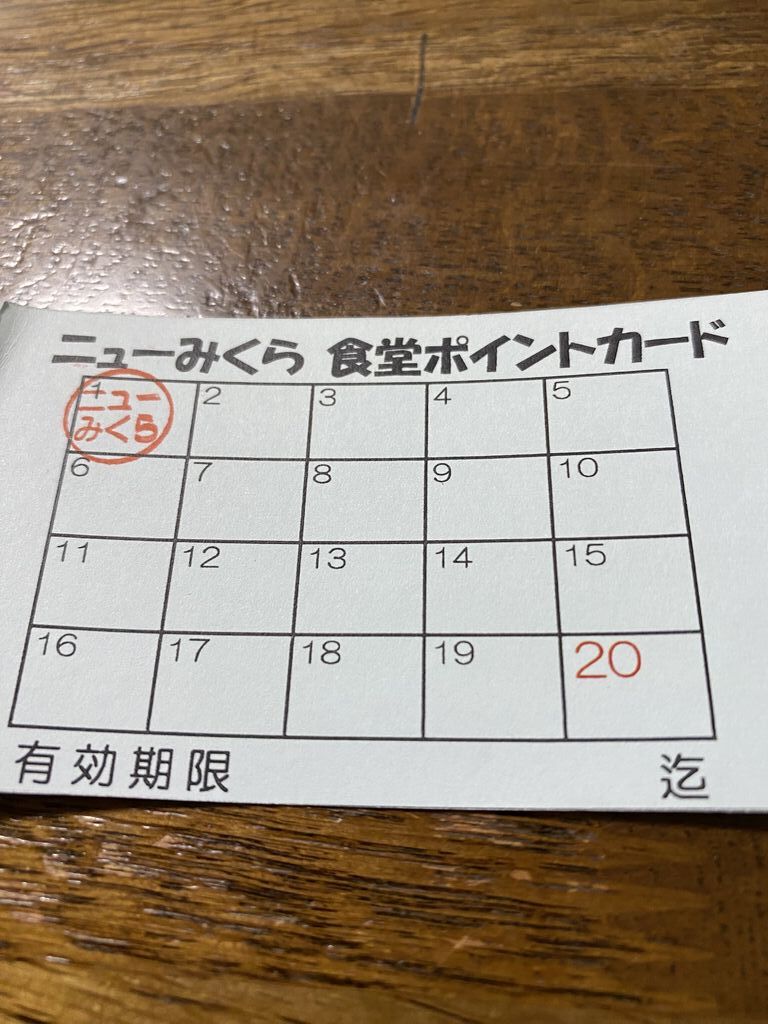 ニューみくら 食堂ポイントカード
1 2 3 4 5
ニュー
みくら
6 7 8 9 10
11 12 13 14 15
16 17 18 19 20
有効期限 迄